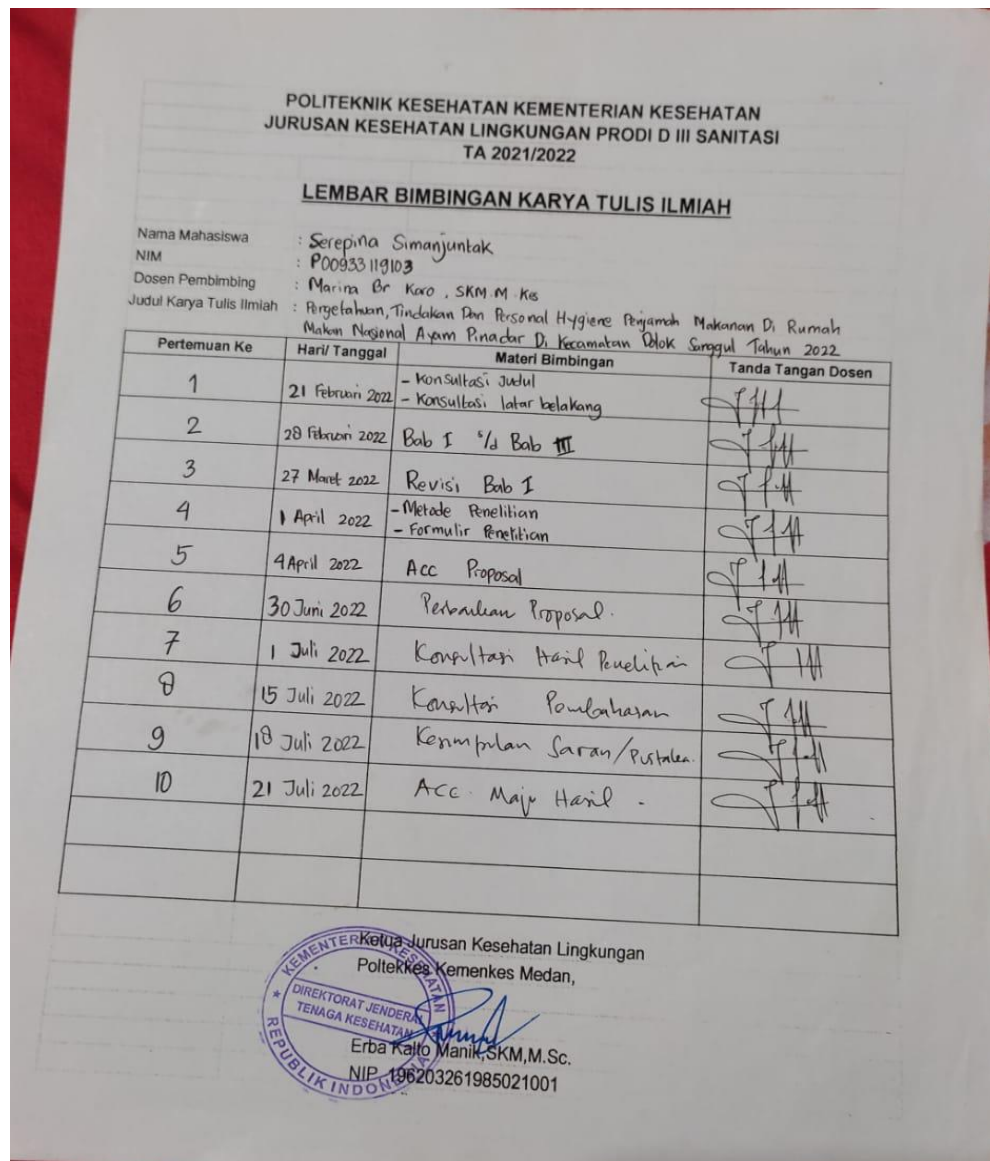 POLITEKNIK KESEHATAN KEMENTERIAN KESEHATAN
JURUSAN KESEHATAN LINGKUNGAN PRODI D III SANITASI
TA 2021/2022
LEMBAR BIMBINGAN KARYA TULIS ILMIAH
Nama Mahasiswa : Serepina Simanjuntak
NIM : P00933119103
Dosen Pembimbing : Marina Br Karo, SKM.M.Kes
Judul Karya Tulis Ilmiah : Pengetahuan, Tindakan Dan Personal Hygiene Penjamah Makanan Di Rumah
Makan Nasional Ayam Pinadar Di Kecamatan Dolok Sanggul Tahun 2022
Pertemuan Ke Hari/ Tanggal Materi Bimbingan Tanda Tangan Dosen
1 21 Februari 2022 - Konsultasi Judul
- Konsultasi latar belakang
2 28 Februari 2022 Bab I s/d Bab III
3 27 Maret 2022 Revisi Bab I
4 1 April 2022 - Metode Penelitian
- Formulir Penelitian
5 4 April 2022 Acc Proposal
6 30 Juni 2022 Perbaikan Proposal.
7 1 Juli 2022 Konsultasi Hasil Penelitian
8 15 Juli 2022 Konsultasi Pembahasan
9 18 Juli 2022 Kesimpulan Saran/Pustaka.
10 21 Juli 2022 Acc. Maju Hasil -
Ketua Jurusan Kesehatan Lingkungan
Poltekkes Kemenkes Medan,
KEMENTERIAN KESEHATAN
DIREKTORAT JENDERAL
TENAGA KESEHATAN
REPUBLIK INDONESIA
Erba Kalto Manik,SKM,M.Sc.
NIP. 196203261985021001